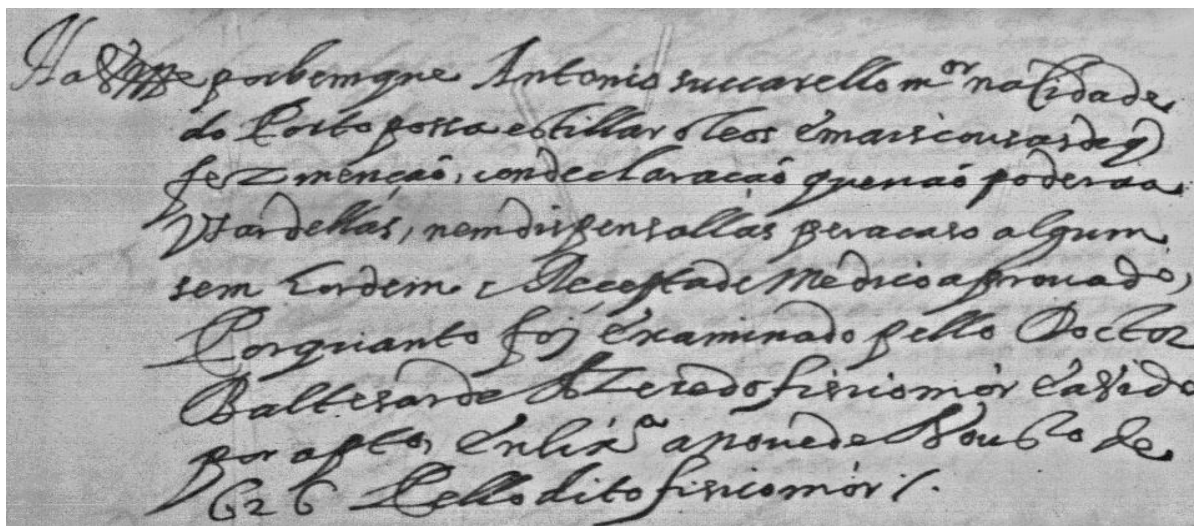 Ha S Mgde por bem que Antonio succarello m.or na Cidade
do Porto possa estillar oleos e mais cousas de q
fez menção, con declaração que não poderaa
Usar dellas, nem dispensallas pera caso algum
sem hordem e Recepta de Medico aprouado,
Porquanto foi examinado pello Doctor
Baltesar de Azeredo fisico mór e auido
por apto, em lix.a a noue de Agosto de
626 Pello dito fisico mór /.